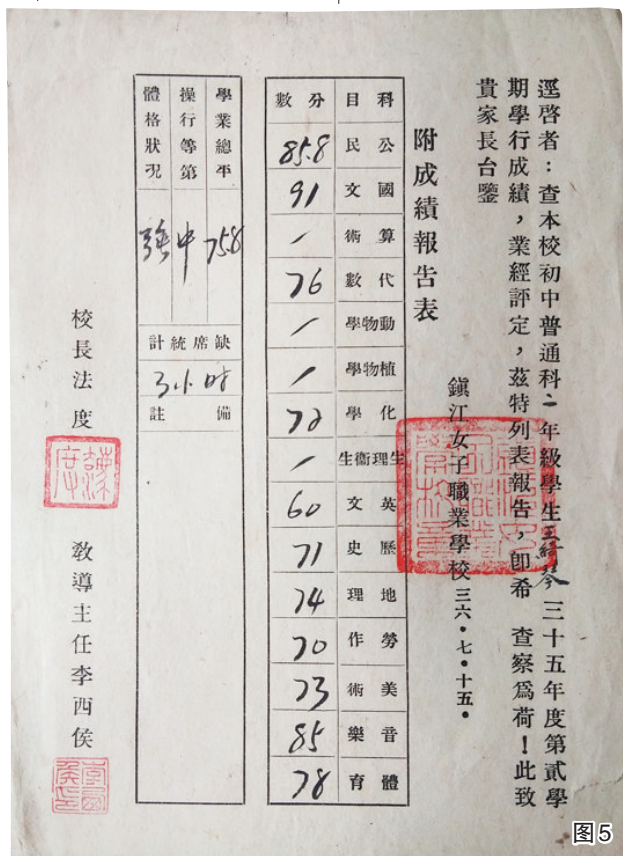 逕啓者：查本校初中普通科二年級學生王琴三十五年度第貳學
期學行成績，業經評定，茲特列表報告，卽希 查察爲荷！此致
貴家長台鑒
鎮江女子職業學校三六•七•十五•
附成績報告表
科目 分數
公民 85.8
國文 91
算術 /
代數 76
動物學 /
植物學 /
化學 72
生理衞生 /
英文 60
歷史 71
地理 74
勞作 70
美術 73
音樂 85
體育 78
學業總平 75.8
操行等第 中
體格狀況 強
缺席統計
3小时
備註
教導主任李西侯
校長法度
图5